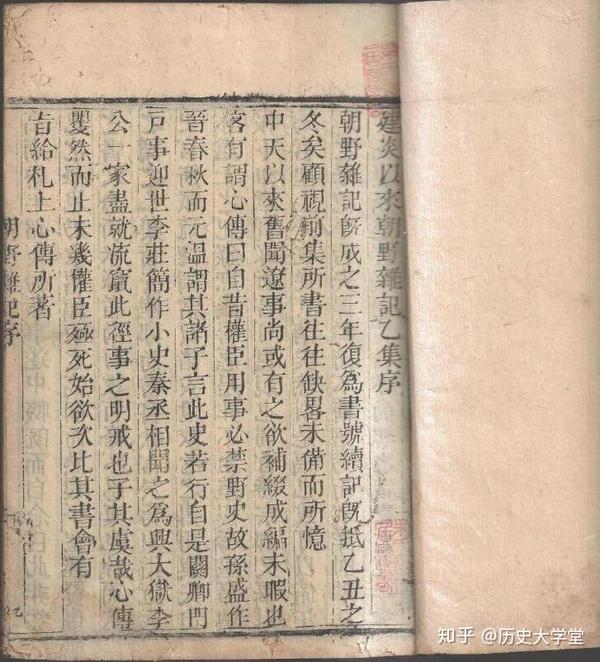 建炎以來朝野雜記乙集序
朝野雜記旣成之三年復爲書號續記旣抵乙丑之
冬矣顧視前集所書往往缺畧未備而所憶
中天以來舊聞遼事尚或有之欲補綴成編未暇也
客有謂心傳曰自昔權臣用事必禁野史故孫盛作
晉春秋而元溫謂其諸子言此史若行自是關卿門
戸事迎世李莊簡作小史秦丞相聞之爲興大獄李
公一家盡就流竄此徑事之明戒也子其虞哉心傳
矍然而止未幾權臣殛死始欲次比其書會有
旨給札上心傳所著
朝野雜記序
知乎 @历史大学堂